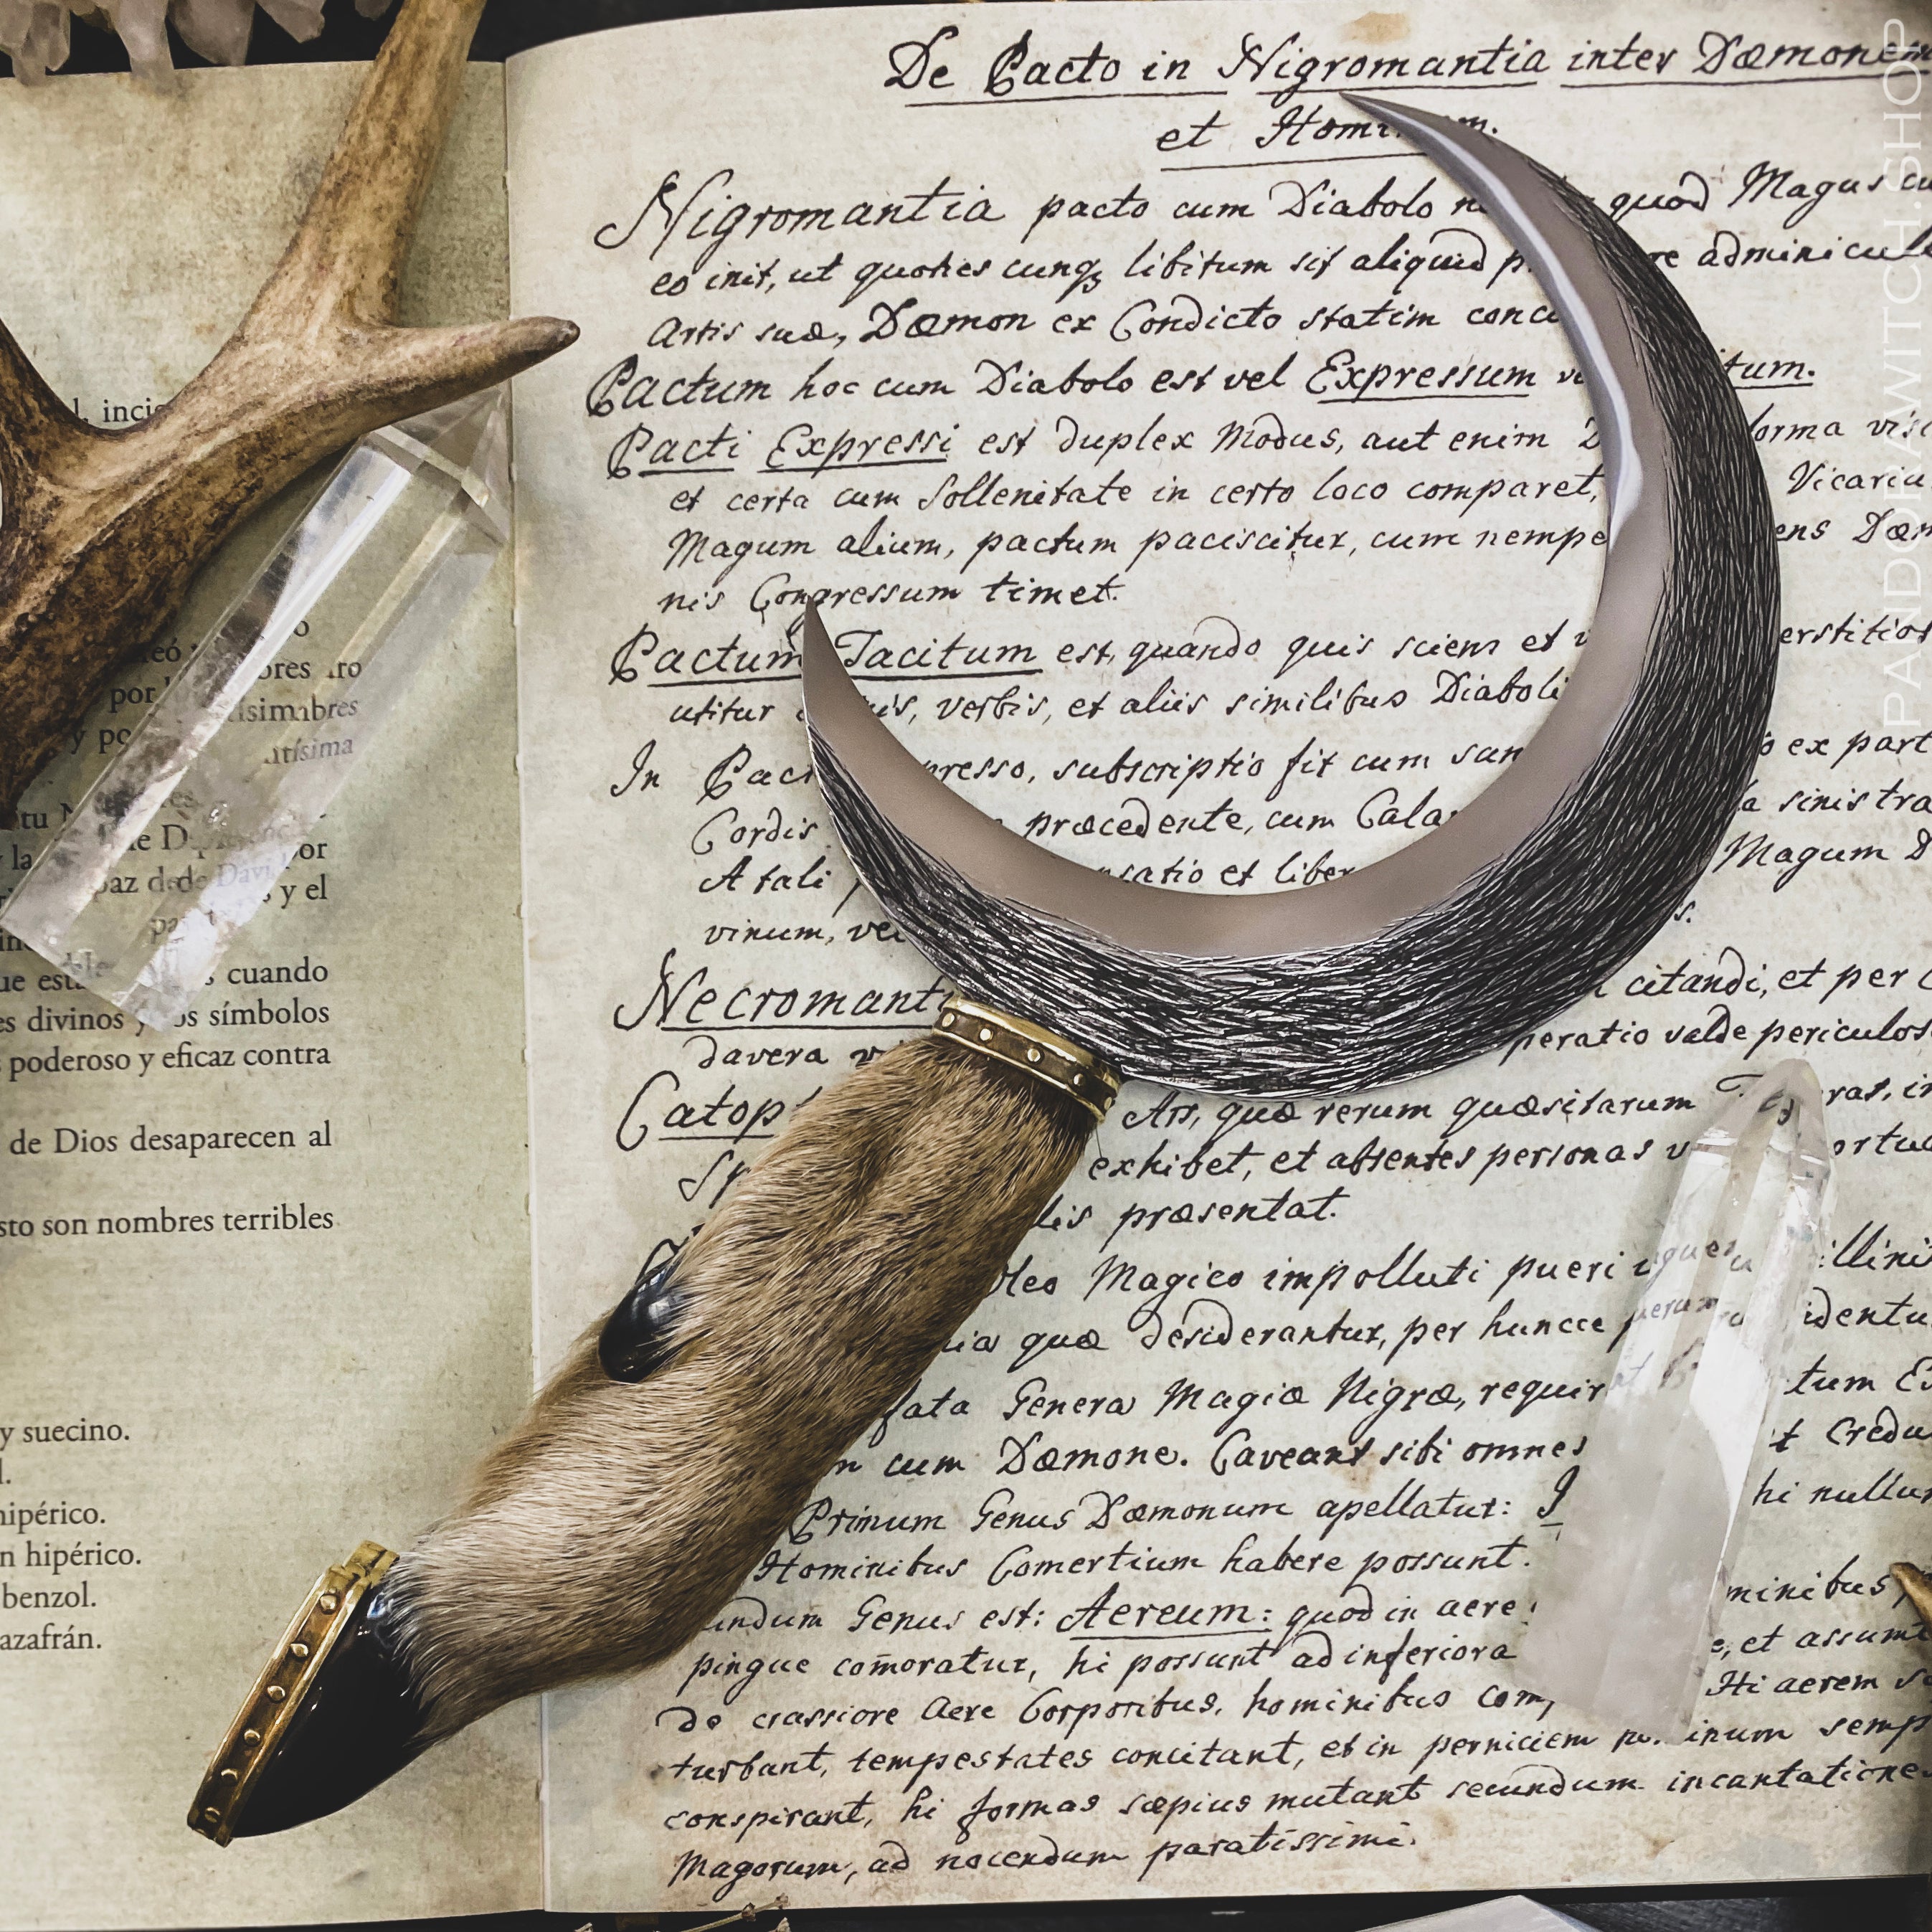 l, incis
o
por
y po
y la
paz de de Davi
y el
cuando
es divinos y los símbolos
poderoso y eficaz contra
de Dios desaparecen al
sto son nombres terribles
y suecino.
l.
hipérico.
n hipérico.
benzol.
azafrán.
De Pacto in Nigromantia inter Dæmonem
et Hom
Nigromantia pacto cum Diabolo quod Magus cu
eo init, ut quoties cunqꝫ libitum sit aliquid adminicul
Artis suæ, Dæmon ex Condicto statim conc
Pactum hoc cum Diabolo est vel Expressum tum.
Pacti Expressi est duplex Modus, aut enim forma visi
et certa cum Sollenitate in certo loco comparet, Vicariu
Magum alium, pactum paciscitur, cum nempe ens Dæm
nis Congressum timet.
Pactum Tacitum est, quando quis sciens et erstitios
utitur verbis, et aliis similibus Diaboli
In Pac presso, subscriptio fit cum san ex part
Cordis præcedente, cum Cala sinistra
A tali satio et liber Magum D
vinum, vel s.
Necromanti citandi, et per
davera peratio valde periculos
Catop Ars, quæ rerum quæsitarum ras, in
Sp exhibet, et absentes personas ortu
lis præsentat.
Oleo Magico impolluti pueri illini
quæ desiderantur, per huncce identu
fata Genera Magiæ Nigræ, requir tum Ex
cum Dæmone. Caveant sibi omnes et Credu
Primum Genus Dæmonum apellatur: I hi nullu
Hominibus Comertium habere possunt. minibus
undum Genus est: Aereum: quod in aere e, et assumt
pingue com̄oratur, hi possunt ad inferiora Hi aerem
de crassiore Aere Corporibus, hominibus com
turbant, tempestates concitant, et in perniciem inum semp
conspirant, hi formas sæpius mutant secundum incantatione
Magorum, ad nocendum paratissimi.
PANDORAWITCH.SHOP